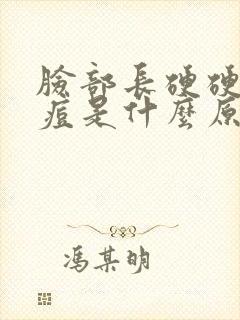 臉部長硬硬
痘是什麼原
馮某明